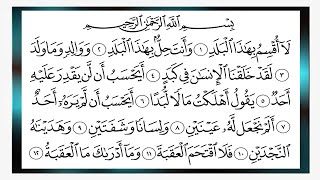 بِسْمِ اللَّهِ الرَّحْمَٰنِ الرَّحِيمِ
لَا أُقْسِمُ بِهَٰذَا الْبَلَدِ ۝١ وَأَنتَ حِلٌّ بِهَٰذَا الْبَلَدِ ۝٢ وَوَالِدٍ وَمَا وَلَدَ
۝٣ لَقَدْ خَلَقْنَا الْإِنسَٰنَ فِي كَبَدٍ ۝٤ أَيَحْسَبُ أَن لَّن يَقْدِرَ عَلَيْهِ
أَحَدٌ ۝٥ يَقُولُ أَهْلَكْتُ مَالًا لُّبَدًا ۝٦ أَيَحْسَبُ أَن لَّمْ يَرَهُ أَحَدٌ
۝٧ أَلَمْ نَجْعَل لَّهُ عَيْنَيْنِ ۝٨ وَلِسَانًا وَشَفَتَيْنِ ۝٩ وَهَدَيْنَٰهُ
النَّجْدَيْنِ ۝١٠ فَلَا اقْتَحَمَ الْعَقَبَةَ ۝١١ وَمَا أَدْرَىٰكَ مَا الْعَقَبَةُ ۝١٢